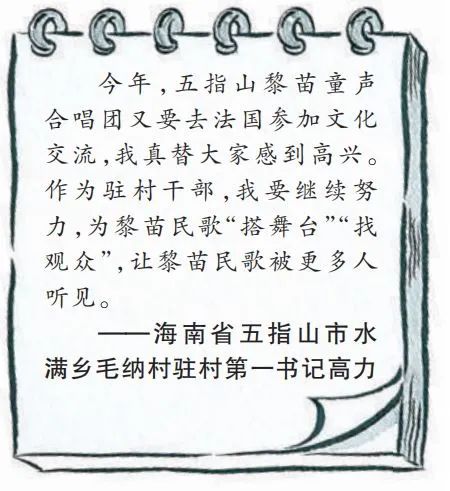 今年，五指山黎苗童声
合唱团又要去法国参加文化
交流，我真替大家感到高兴。
作为驻村干部，我要继续努
力，为黎苗民歌“搭舞台”“找
观众”，让黎苗民歌被更多人
听见。
——海南省五指山市水
满乡毛纳村驻村第一书记高力